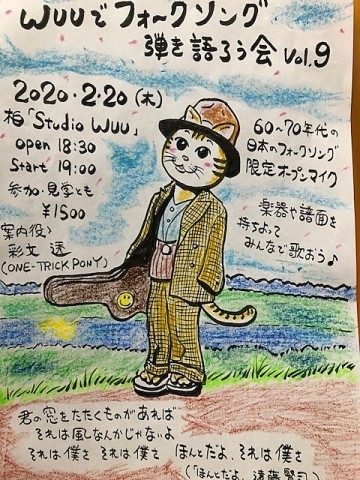 WUUでフォークソング
弾き語ろう会 Vol.9
2020・2・20 (木)
柏「Studio WUU」
open 18:30
Start 19:00
参加・見学とも
¥1500
案内役:
彩文 透
(ONE-TRICK PONY)
60~70年代の
日本のフォークソング
限定オープンマイク
楽器や譜面を
持ちよって
みんなで歌おう♪
君の窓をたたくものがあれば
それは風なんかじゃないよ
それは僕さ それは僕さ ほんとだよ、それは僕さ
(「ほんとだよ」遠藤賢司)